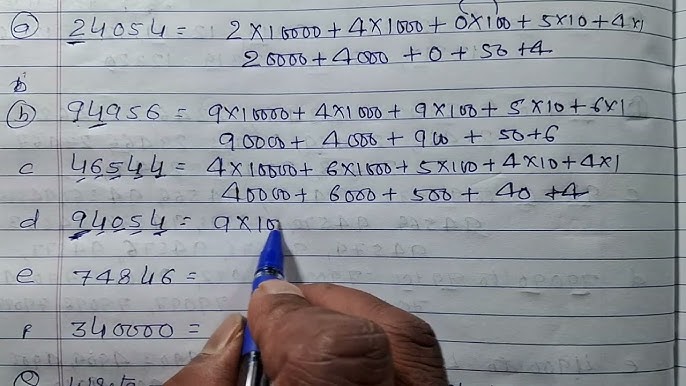 a 24054 = 2×10000 + 4×1000 + 0×100 + 5×10 + 4×1
20000 + 4000 + 0 + 50 + 4
b 94956 = 9×10000 + 4×1000 + 9×100 + 5×10 + 6×1
90000 + 4000 + 900 + 50 + 6
c 46544 = 4×10000 + 6×1000 + 5×100 + 4×10 + 4×1
40000 + 6000 + 500 + 40 + 4
d 94054 = 9×100
e 74846 =
F 340000 =